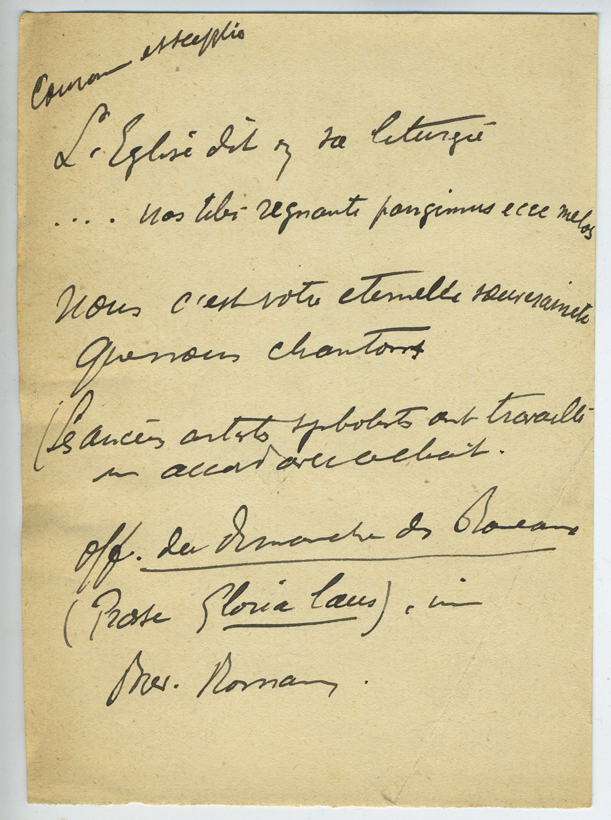 Couronne et sceptre
L'Eglise dit en sa liturgie
.... nos tibi regnanti pangimus ecce melos
Nous c'est votre eternelle souveraineté
que nous chantons
(Les anciens artists symbolists ont travaillé
en accord avec
off. du dimanche des Rameaux
(Prose Gloria laus), in
Brev. Roman.